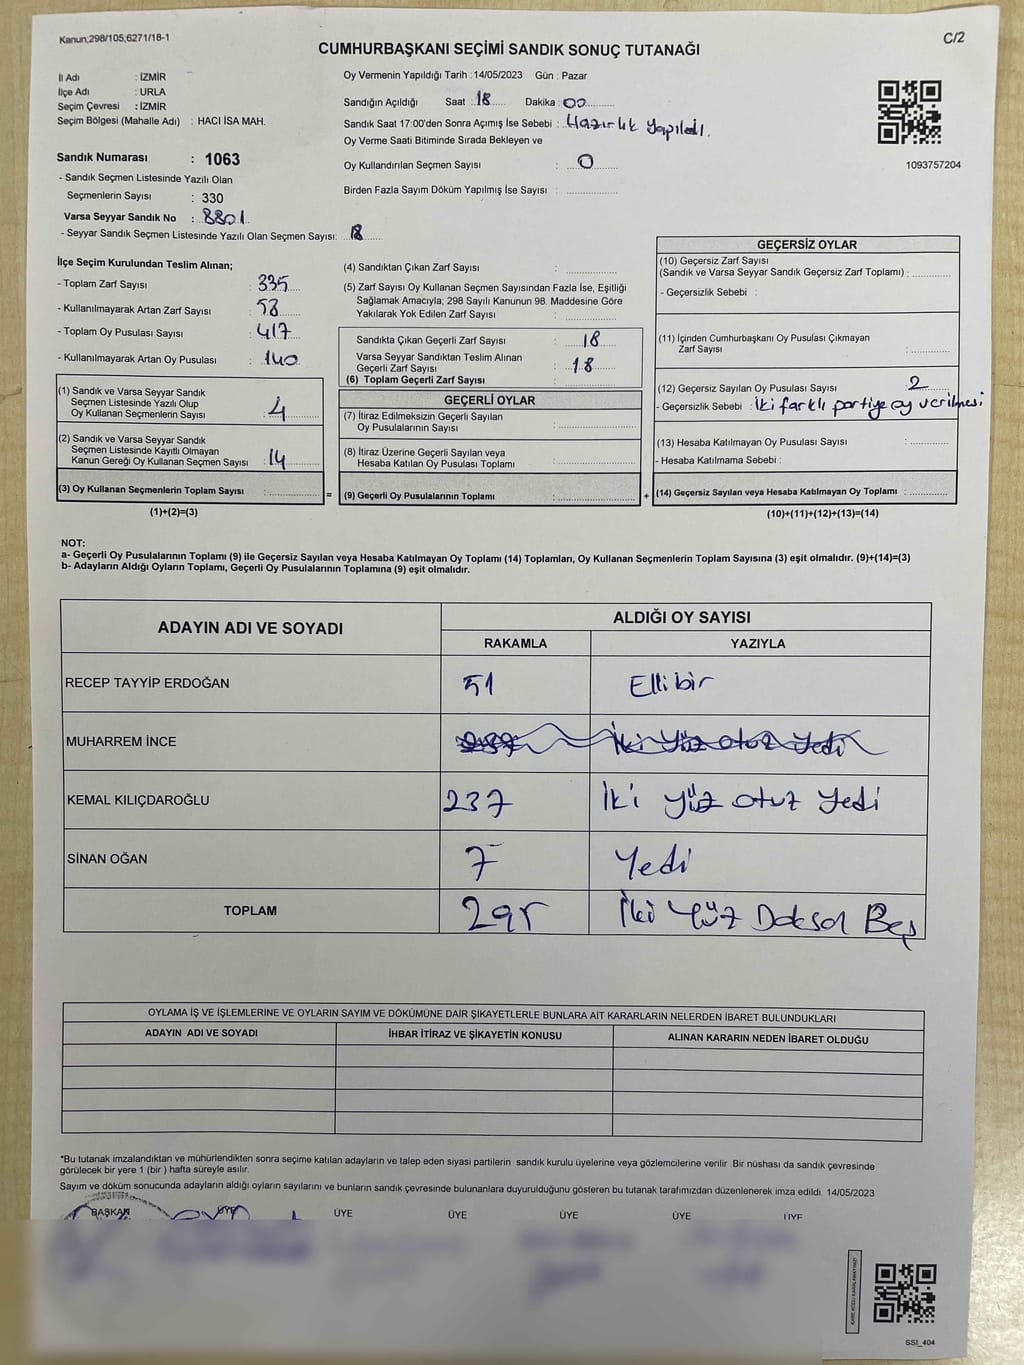 Kanun;298/105,6271/18-1
C/2
CUMHURBAŞKANI SEÇİMİ SANDIK SONUÇ TUTANAĞI
İl Adı : İZMİR
İlçe Adı : URLA
Seçim Çevresi : İZMİR
Seçim Bölgesi (Mahalle Adı) : HACI İSA MAH.
Sandık Numarası : 1063
- Sandık Seçmen Listesinde Yazılı Olan
Seçmenlerin Sayısı : 330
Varsa Seyyar Sandık No : 8801
- Seyyar Sandık Seçmen Listesinde Yazılı Olan Seçmen Sayısı: 18
Oy Vermenin Yapıldığı Tarih : 14/05/2023 Gün : Pazar
Sandığın Açıldığı Saat : 18 Dakika : 00
Sandık Saat 17:00'den Sonra Açımış İse Sebebi : Hazırlık yapıldı.
Oy Verme Saati Bitiminde Sırada Bekleyen ve
Oy Kullandırılan Seçmen Sayısı : 0
Birden Fazla Sayım Döküm Yapılmış İse Sayısı :
1093757204
İlçe Seçim Kurulundan Teslim Alınan;
- Toplam Zarf Sayısı : 335
- Kullanılmayarak Artan Zarf Sayısı : 58
- Toplam Oy Pusulası Sayısı : 417
- Kullanılmayarak Artan Oy Pusulası : 140
(1) Sandık ve Varsa Seyyar Sandık
Seçmen Listesinde Yazılı Olup
Oy Kullanan Seçmenlerin Sayısı : 4
(2) Sandık ve Varsa Seyyar Sandık
Seçmen Listesinde Kayıtlı Olmayan
Kanun Gereği Oy Kullanan Seçmen Sayısı : 14
(3) Oy Kullanan Seçmenlerin Toplam Sayısı :
(1)+(2)=(3)
(4) Sandıktan Çıkan Zarf Sayısı :
(5) Zarf Sayısı Oy Kullanan Seçmen Sayısından Fazla İse, Eşitliği
Sağlamak Amacıyla; 298 Sayılı Kanunun 98. Maddesine Göre
Yakılarak Yok Edilen Zarf Sayısı :
Sandıkta Çıkan Geçerli Zarf Sayısı : 18
Varsa Seyyar Sandıktan Teslim Alınan
Geçerli Zarf Sayısı : 18
(6) Toplam Geçerli Zarf Sayısı :
GEÇERLİ OYLAR
(7) İtiraz Edilmeksizin Geçerli Sayılan
Oy Pusulalarının Sayısı :
(8) İtiraz Üzerine Geçerli Sayılan veya
Hesaba Katılan Oy Pusulası Toplamı :
= (9) Geçerli Oy Pusulalarının Toplamı :
GEÇERSİZ OYLAR
(10) Geçersiz Zarf Sayısı
(Sandık ve Varsa Seyyar Sandık Geçersiz Zarf Toplamı) :
- Geçersizlik Sebebi :
(11) İçinden Cumhurbaşkanı Oy Pusulası Çıkmayan
Zarf Sayısı :
(12) Geçersiz Sayılan Oy Pusulası Sayısı : 2
- Geçersizlik Sebebi : İki farklı partiye oy verilmesi
(13) Hesaba Katılmayan Oy Pusulası Sayısı :
- Hesaba Katılmama Sebebi :
+ (14) Geçersiz Sayılan veya Hesaba Katılmayan Oy Toplamı :
(10)+(11)+(12)+(13)=(14)
NOT:
a- Geçerli Oy Pusulalarının Toplamı (9) ile Geçersiz Sayılan veya Hesaba Katılmayan Oy Toplamı (14) Toplamları, Oy Kullanan Seçmenlerin Toplam Sayısına (3) eşit olmalıdır. (9)+(14)=(3)
b- Adayların Aldığı Oyların Toplamı, Geçerli Oy Pusulalarının Toplamına (9) eşit olmalıdır.
ADAYIN ADI VE SOYADI
ALDIĞI OY SAYISI
RAKAMLA YAZIYLA
RECEP TAYYİP ERDOĞAN 51 Ellibir
MUHARREM İNCE 237 İki Yüz otuz Yedi
KEMAL KILIÇDAROĞLU 237 İki yüz otuz Yedi
SİNAN OĞAN 7 Yedi
TOPLAM 295 İki Yüz Doksan Beş
OYLAMA İŞ VE İŞLEMLERİNE VE OYLARIN SAYIM VE DÖKÜMÜNE DAİR ŞİKAYETLERLE BUNLARA AİT KARARLARIN NELERDEN İBARET BULUNDUKLARI
ADAYIN ADI VE SOYADI İHBAR İTİRAZ VE ŞİKAYETİN KONUSU ALINAN KARARIN NEDEN İBARET OLDUĞU
*Bu tutanak imzalandıktan ve mühürlendikten sonra seçime katılan adayların ve talep eden siyasi partilerin sandık kurulu üyelerine veya gözlemcilerine verilir .Bir nüshası da sandık çevresinde
görülecek bir yere 1 (bir ) hafta süreyle asılır.
Sayım ve döküm sonucunda adayların aldığı oyların sayılarını ve bunların sandık çevresinde bulunanlara duyurulduğunu gösteren bu tutanak tarafımızdan düzenlenerek imza edildi. 14/05/2023
BAŞKAN ÜYE ÜYE ÜYE ÜYE ÜYE ÜYE
SSI_404